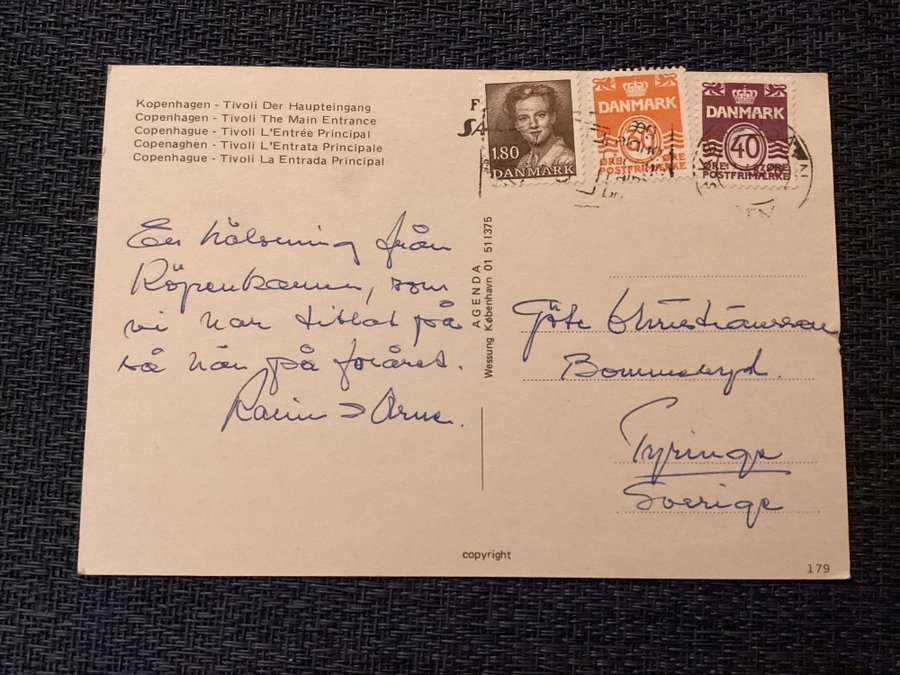 Kopenhagen - Tivoli Der Haupteingang
Copenhagen - Tivoli The Main Entrance
Copenhague - Tivoli L'Entrée Principal
Copenaghen - Tivoli L'Entrata Principale
Copenhague - Tivoli La Entrada Principal
1.80
DANMARK
DANMARK
ØRE
POSTFRIMÆRKE
DANMARK
40
ØRE ØRE
POSTFRIMÆRKE
En hälsning från
Köpenhamn, som
vi har tittat på
så här på foråret.
Karin Arne.
AGENDA
Wessung København 01 511375
Göte Christiansson
Bommeryd.
Tyringe
Sverige
copyright
179